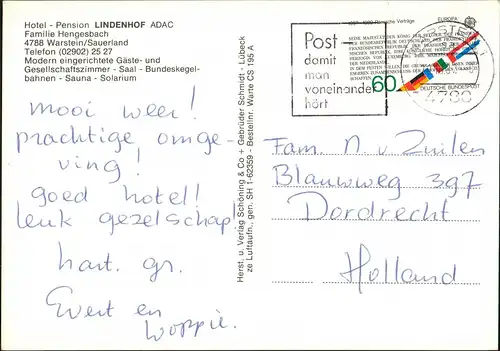 Hotel - Pension LINDENHOF ADAC
Familie Hengesbach
4788 Warstein/Sauerland
Telefon (02902) 25 27
Modern eingerichtete Gäste- und
Gesellschaftszimmer - Saal - Bundeskegel-
bahnen - Sauna - Solarium
mooi weer!
prachtige omge-
ving!
goed hotel!
leuk gezelschap!
hart. gr.
Evert en
Woppie.
Herst. u. Verlag Schöning & Co + Gebrüder Schmidt - Lübeck
ze Luftaufn., gen. SH 1-62359 - Bestellnr. Warte CS 195 A
Post-
damit
man
voneinander
hört
Römische Verträge
EUROPA
60
DEUTSCHE BUNDESPOST
Fam. N. v. Zuilen
Blauwweg 397
Dordrecht
Holland